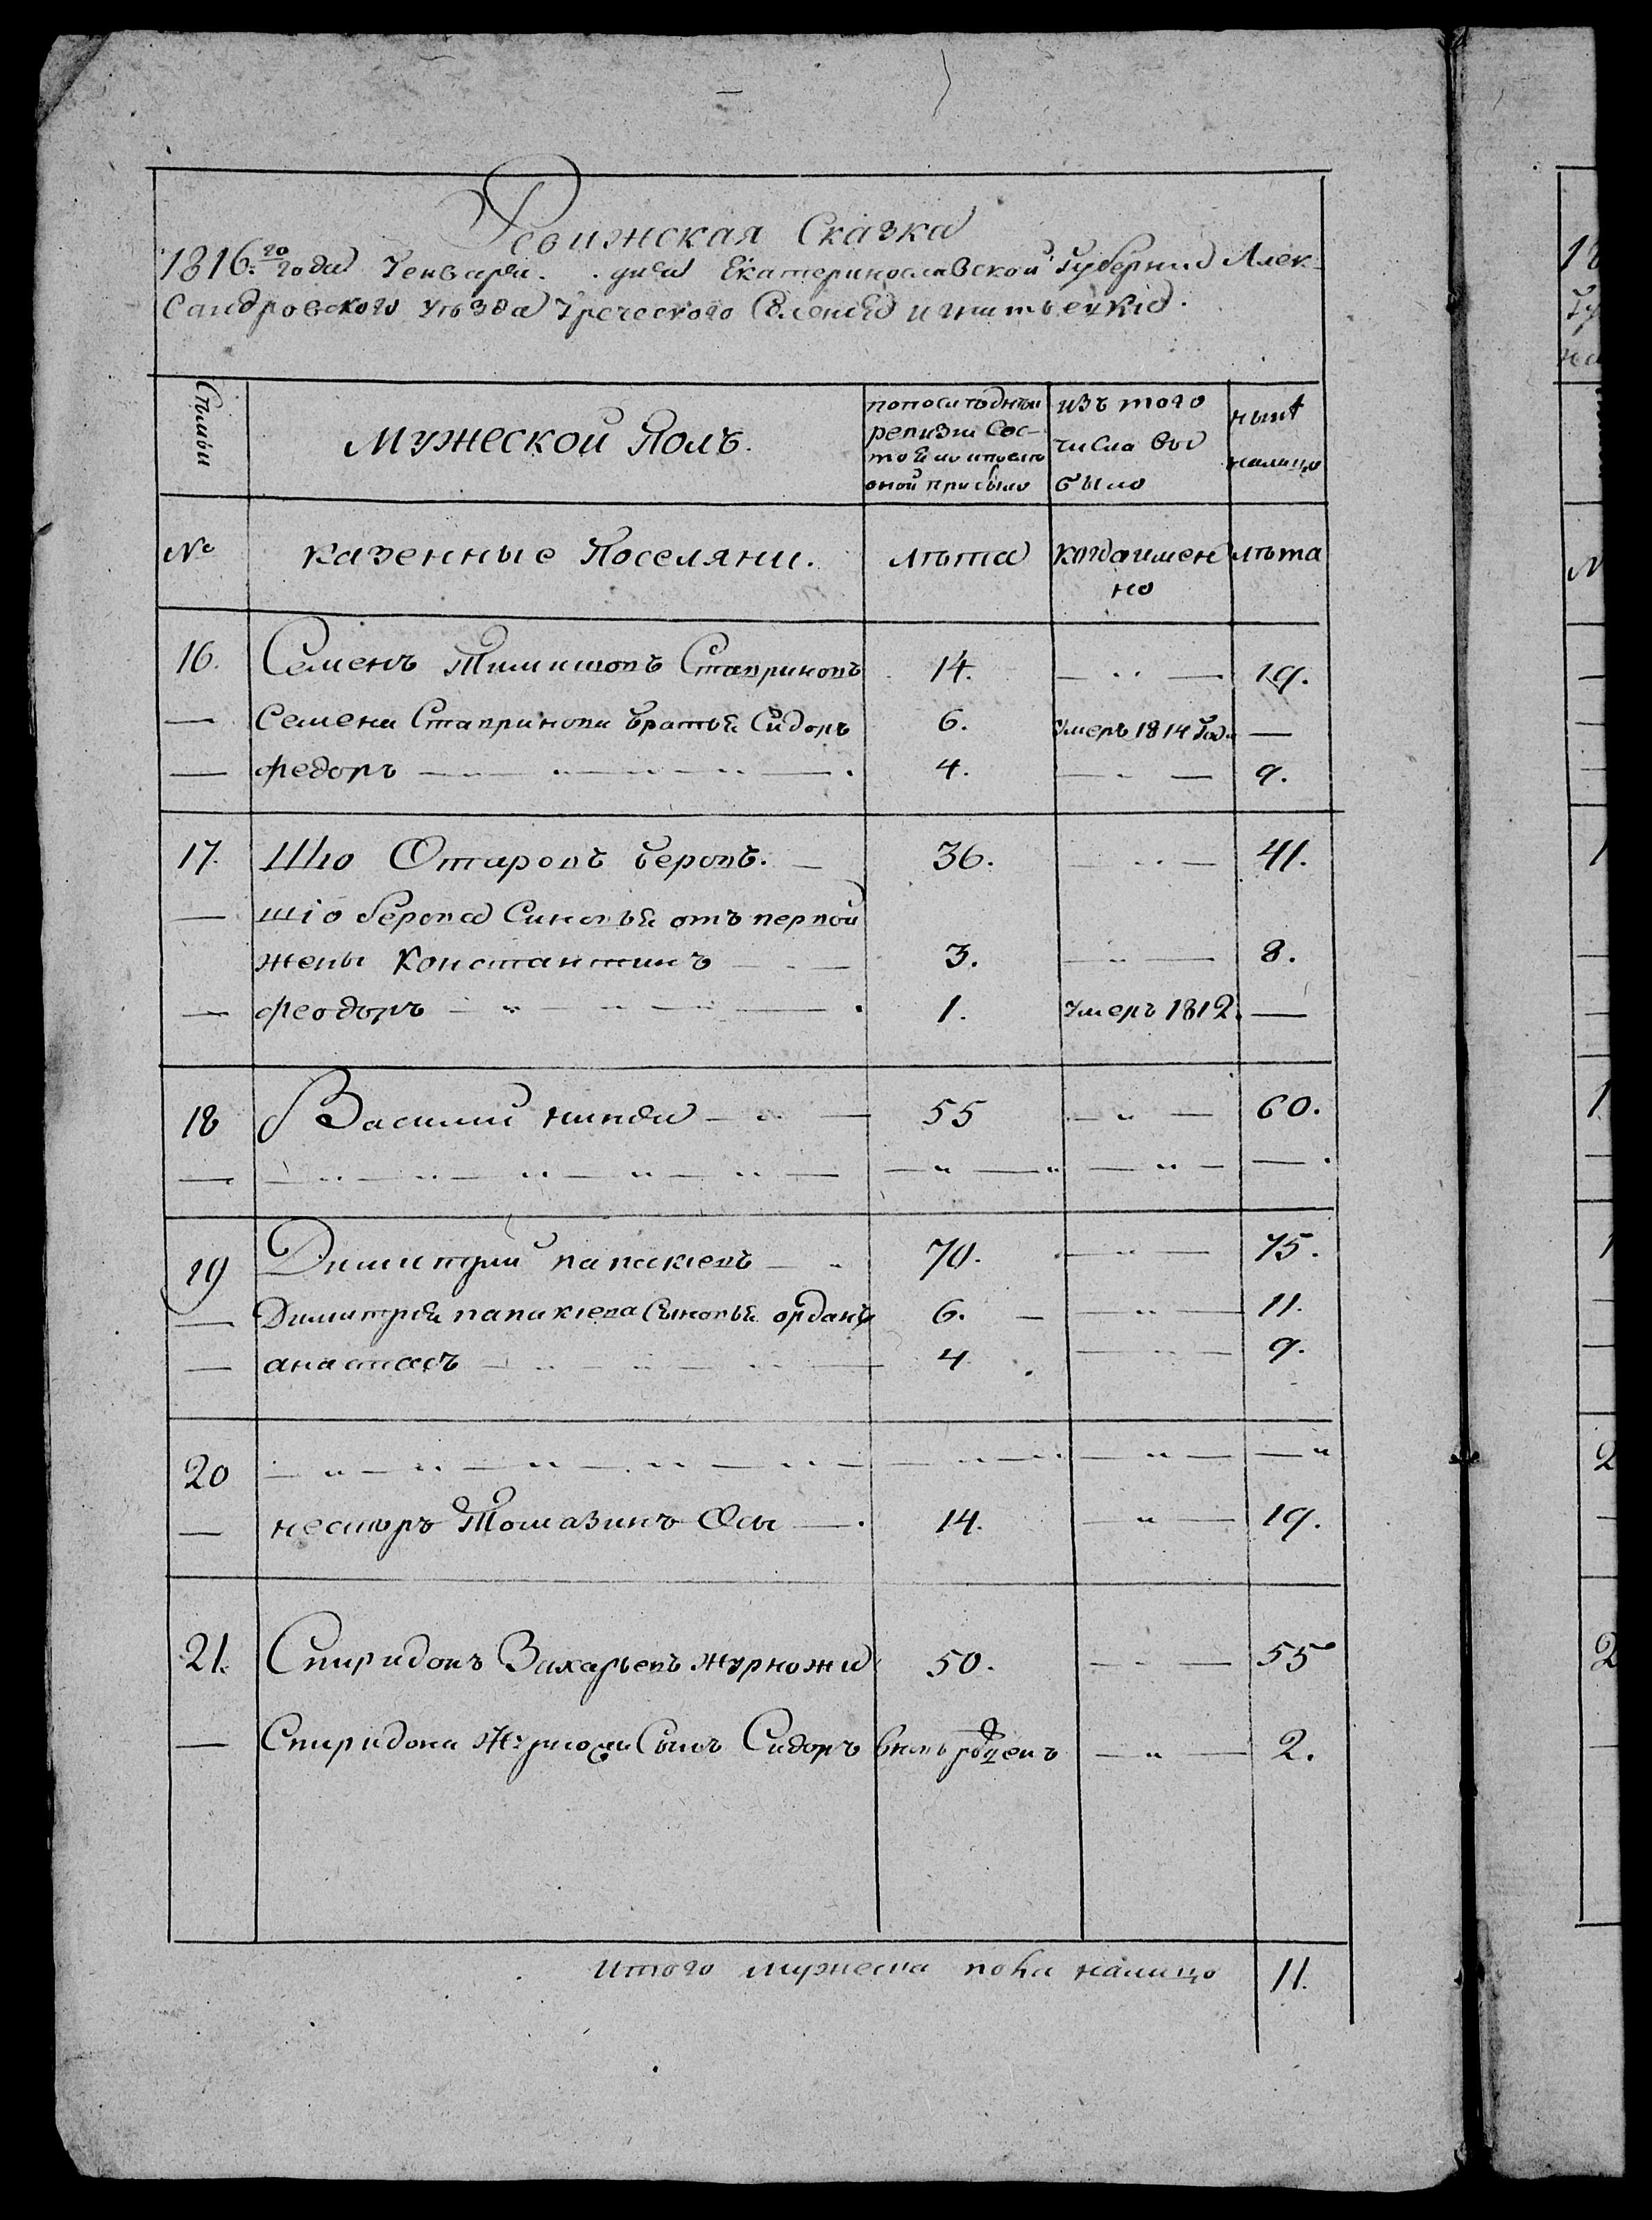 Ревижская Сказка
1816:го года Генваря . . дня Екатеринославской Губернии Алек-
сандровского уѣзда Греческого Селения
Сѣмьи
Мужеской Полъ.
по последнѣй
ревизии Сос-
тояло и послѣ
оной прибыло
изъ того
числа вы
было
нынѣ
налицо
№ казенные Поселяни. лѣта когда имен лѣта
но
16. Семенъ Тимишовъ Ставриновъ 14. — .. — 19.
— Семена Ставринова братья Сидоръ 6. умеръ 1814 года —
— федоръ 4. — .. — 9.
17. Шіо Отаровъ беровъ. 36. — .. — 41.
— шіо берова Синовья отъ первой
жены Константинъ 3. — .. — 8.
— феодоръ 1. умеръ 1812. —
18 Василий 55 — .. — 60.
19 Димитрий папакіевъ 70. — .. — 75.
— Димитрія папакіева Сыновья орданъ 6. — .. — 11.
— анастасъ 4. — .. — 9.
20
— несторъ Томазинъ 14. — .. — 19.
21. Спиридонъ Захарьевъ журножи 50. — .. — 55
— Спиридона Сынъ Сидоръ вновь рожденъ — .. — 2.
Итого мужеска пола налицо 11.
18
Гу
№
1
1
1
2
2